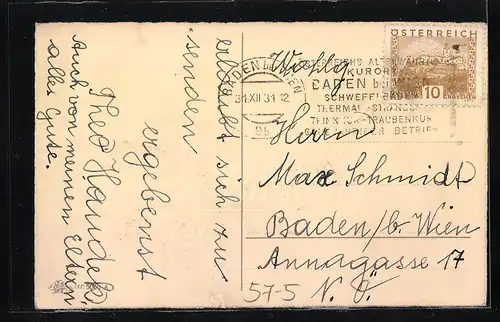 erlaubt sich zu
senden
ergebenst
Theo Handels.
Auch von meinen Eltern
alles Gute.
ÖSTERREICH
10
BADEN B. WIEN
31.XII 31 12
9b
ÖSTERREICHS ALTBEWÄHRTER
KURORT
BADEN bei WIEN
SCHWEFELBÄDER
THERMAL-STRANDBAD
TRINKKUR-TRAUBENKUR
BETRIEB
Wohlg.
Herrn
Max Schmidt
Baden/b. Wien
Annagasse 17
N. Ö.
57-5